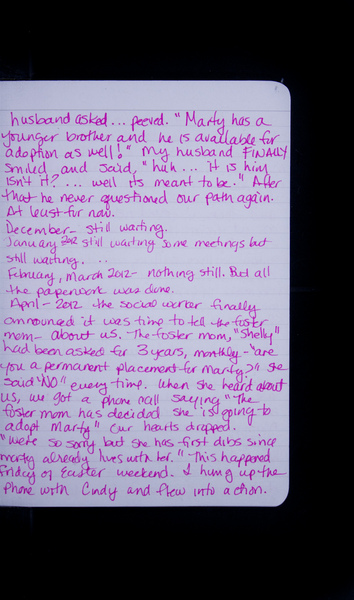 husband asked... peeved. "Marty has a
younger brother and he is available for
adoption as well!" My husband FINALLY
smiled and said, "huh... it is him
isn't it?... well its meant to be." After
that he never questioned our path again.
At least for now.
December- still waiting.
January 2012 still waiting some meetings but
still waiting. ...
February, March 2012- nothing still. But all
the paperwork was done.
April - 2012 the social worker finally
announced it was time to tell the foster
mom- about us. The foster mom, "Shelly"
had been asked for 3 years, monthly - "are
you a permanent placement for Marty?" She
said "NO" every time. When she heard about
us, we got a phone call saying "The
foster mom has decided she is going to
adopt Marty" Our hearts dropped.
"We're so sorry but she has first dibs since
Marty already lives with her." This happened
Friday of Easter weekend. I hung up the
phone with Cindy and flew into action.